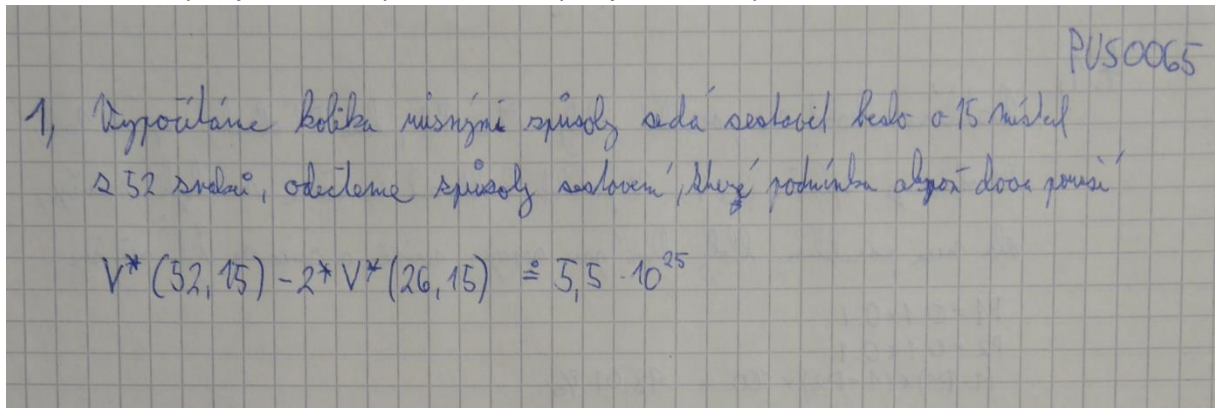 PUS0065
1, Vypočítáme kolika různými způsoby se dá sestavit heslo o 15 místech
z 52 znaků, odečteme způsoby sestavení, podmínka alespoň dvou poruší
V*(52,15) - 2*V*(26,15) ≐ 5,5 · 10²⁵